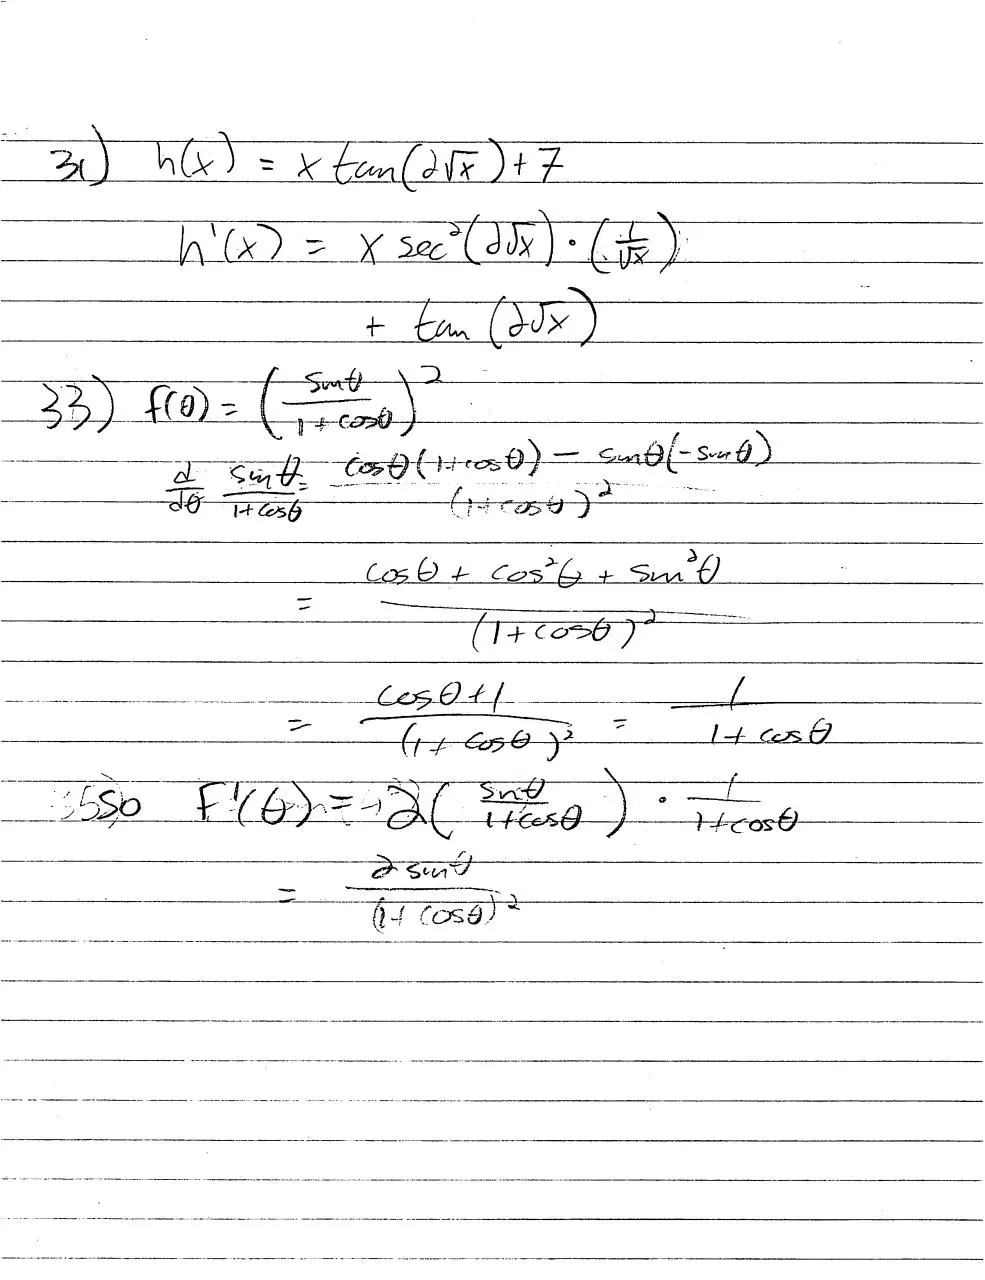 31) h(x) = x tan(2√x) + 7
h'(x) = x sec²(2√x) · (1/√x)
+ tan(2√x)
33) f(θ) = (sinθ/(1+cosθ))²
d/dθ sinθ/(1+cosθ) = (cosθ(1+cosθ) − sinθ(−sinθ))/(1+cosθ)²
= (cosθ + cos²θ + sin²θ)/(1+cosθ)²
= (cosθ+1)/(1+cosθ)² = 1/(1+cosθ)
So F'(θ) = 2(sinθ/(1+cosθ)) · 1/(1+cosθ)
= 2sinθ/(1+cosθ)²